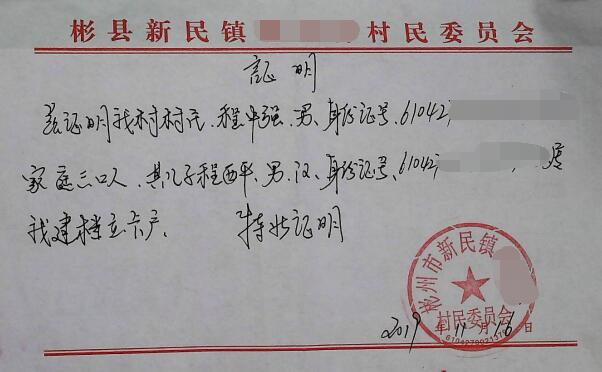 彬县新民镇 村民委员会
证明
兹证明我村村民、程军强、男、身份证号、61042
家庭三口人、其儿子程西平、男、汉、身份证号、61042 属
我建档立卡户、 特此证明
彬州市新民镇
村民委员会
2019年11月16日